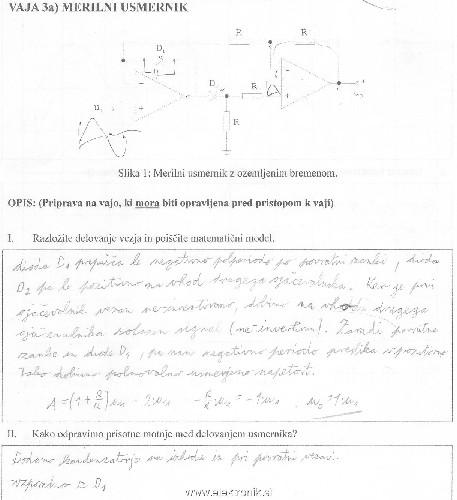 VAJA 3a) MERILNI USMERNIK
R
D₁
D
R
R
Slika 1: Merilni usmernik z ozemljenim bremenom.
OPIS: (Priprava na vajo, ki mora biti opravljena pred pristopom k vaji)
I. Razložite delovanje vezja in poiščite matematični model.
dioda D₁ prepušča le negativno polperiodo po povratni zanki, dioda
D₂ pa le pozitivno na vhod drugega ojačevalnika. Ker je prvi
ojačevalnik vezan neinvertirano, dobimo na vhodu drugega
ojačevalnika enak signal (neinvertiran). Zaradi povratne
zanke in diode D₁, pa nam negativno periodo preslika v pozitivno
tako dobimo polnovalno usmerjeno napetost.
II. Kako odpravimo prisotne motnje med delovanjem usmernika?
Dodamo kondenzatorje na izhodu in pri povratni vezavi.
vzporedno z D₁
www.elektronik.si